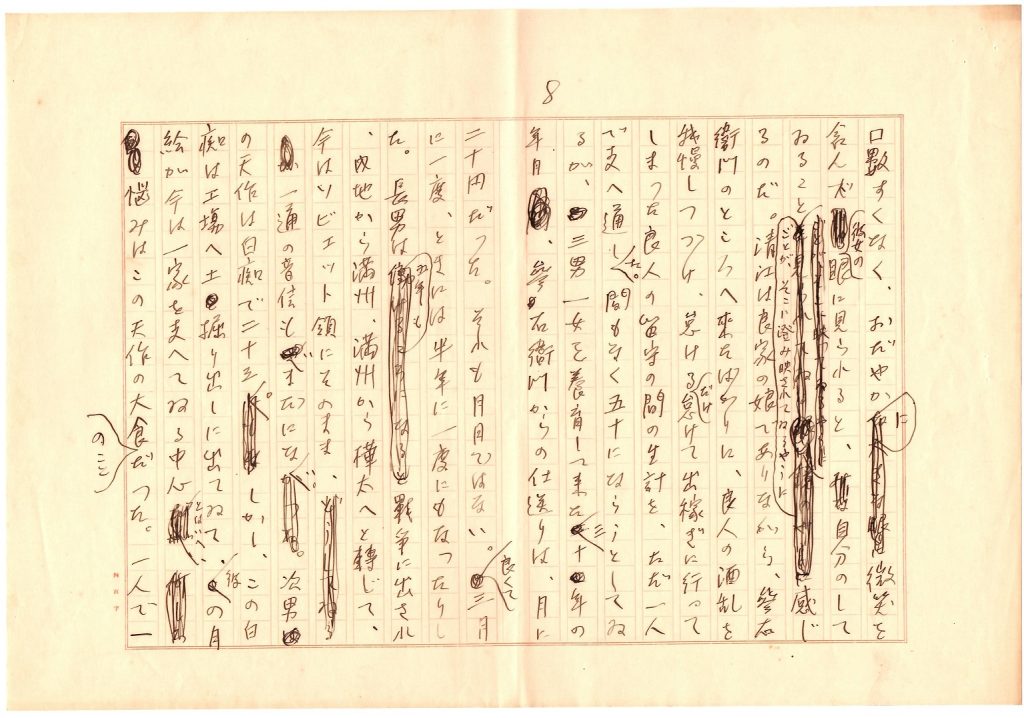 8
口数すくなく、おだやかに微笑を
含んだ彼女の眼に見られると、自分のして
ゐること
ごとが、そこに澄み映されてゐるやうに感じ
るのだ。清江は良家の娘でありながら、參右
衛門のところへ来たばかりに、良人の酒乱を
我慢しつづけ、怠けるだけ怠けて出稼ぎに行って
しまった良人の留守の間の生計を、ただ一人
で支へ通した。間もなく五十にならうとしてゐ
るが、三男一女を養育して来た三十年の
年月、參右衛門からの仕送りは、月に
二十円だった。それも月月ではない。良くて三月
に一度、ときには半年に一度にもなったりし
た。長男は五年も戦争に出され
、内地から満州、満州から樺太へと轉じて、
今はソビエット領にそのまま、
一通の音信もまだにない。次男
の天作は白痴で二十三。しかし、この白
痴は工場へ土掘り出しに出てゐて、彼の月
給が今は一家を支へてゐる中心とはいへ、
悩みはこの天作の大食だった。一人で一
のこと